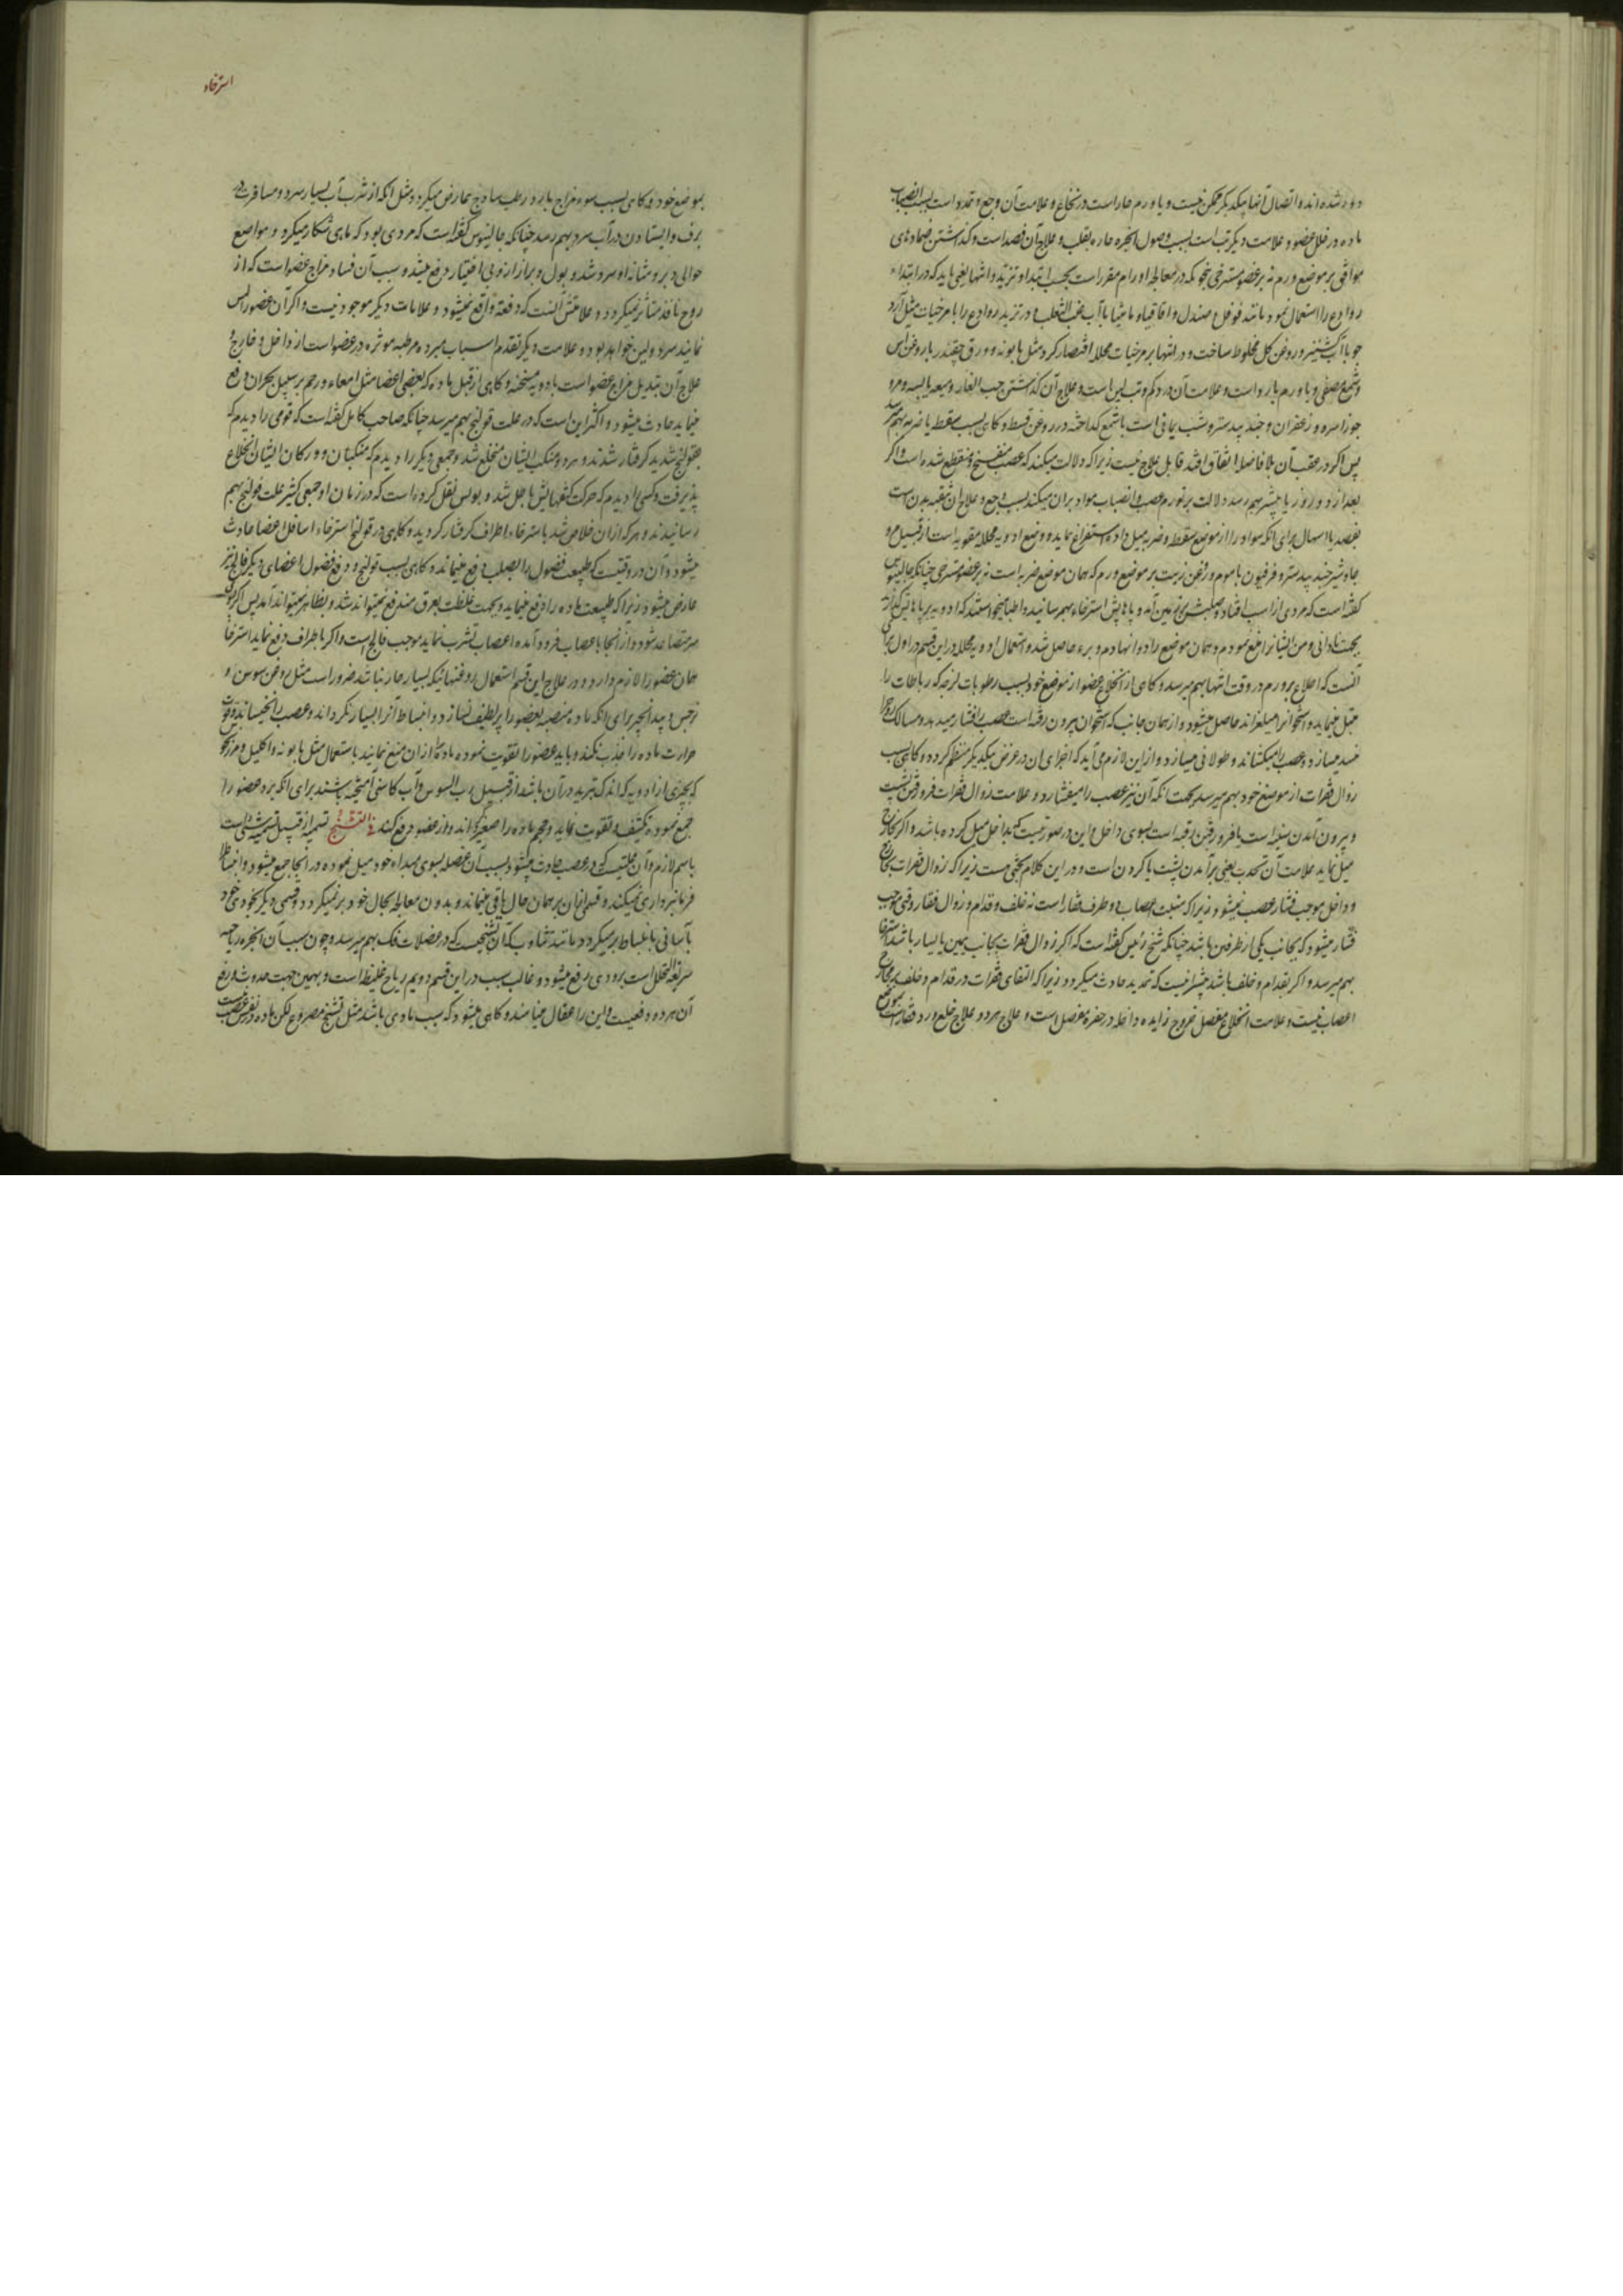 دور شده اند و اتصال آنها بیکدیگر ممکن نیست و یا ورم حار است در نخاع و علامت آن وجع و تمدد است بسبب انصباب
ماده در خلل عضو و علامت دیگر تب است بسبب وصول ابخره حاره بقلب و علاج آن فصد است و گذاشتن ضمادهای
موافق بر موضع ورم نه بر عضو مسترخی بنحویکه در معالجه اورام مقرر است بحسب ابتدا و تزید و انتها یعنی باید که در ابتداء
روادع را استعمال نمود مانند فوفل و صندل و اقاقیا و مامیثا با آب عنب الثعلب و در تزید روادع را با مرخیات مثل آرد
جو با آب کشنیز و روغن گل مخلوط ساخت و در انتها بر مرخیات محلله اقتصار کرد مثل بابونه و ورق چقندر با روغن آس
و شمع مصفی و یا ورم بارد است و علامت آن درد کم و تب لین است و علاج آن گذاشتن حب الغار و میعه یابسه و مرو
جوز السرو و زعفران و جند بیدستر و شب یمانی است با شمع گداخته در روغن قسط و کاهی بسبب سقطه یا ضربه بهم میرسد
پس اکر در عقب آن بلا فاصله اتفاق افتد قابل علاج نیست زیرا که دلالت میکند که عصب منفسخ و منقطع شده است و اکر
بعد از دو روز یا بیشتر بهم رسد دلالت بر تورم عصب و انصباب مواد بران میکند بسبب وجع و علاج آن تنقیه بدن است
بفصد یا اسهال برای انکه مواد را از موضع سقطه و ضربه میل داده استفراغ نماید و وضع ادویه محلله مقویه است از قبیل مر و
جاوشیر و جند بیدستر و فرفیون با موم و روغن زیت بر موضع ورم که همان موضع ضربه است نه بر عضو مسترخی چنانکه جالینوس
کفته است که مردی از اسب افتاد و صلبش بر زمین آمد و پاهایش استرخاء بهم رسانید و اطبا میخواستند که ادویه بر پاهایش گذارند
بجهت نادانی و من ایشانرا منع نمودم و همان موضع را دوا نهادم و برء حاصل شد و استعمال ادویه محلله در این قسم در اول بنا بر
آنست که اطلاع بر ورم در وقت انتها بهم میرسد و کاهی از انخلاع عضو از موضع خود بسبب رطوبات لزجه که رباطات را
مبتل مینماید و استخوانرا میلغزاند حاصل میشود و از همان جانب که استخوان بیرون رفته است عصب را فشار میدهد و مسالک روح را
مسدود میسازد و عصب را میکشاند و طولانی میسازد و از این لازم می آید که اجزای ان در عرض بیکدیکر منضم کردد و کاهی بسبب
زوال فقرات از موضع خود بهم میرسد بجهت انکه آن نیز عصب را میفشارد و علامت زوال فقرات فرو رفتن پشت
و بیرون آمدن سینه است یا فرو رفتن رقبه است بسوی داخل و این در صورتیست که بداخل میل کرده باشد و اکر بخارج
میل نماید علامت آن تحدب یعنی برآمدن پشت یا کردن است و در این کلام بحثی هست زیرا که زوال فقرات بخارج
و داخل موجب فشار عصب نمیشود زیرا که منبت اعصاب دو طرف فقار است نه خلف و قدام و زوال فقار وقتی موجب
فشار میشود که بجانب یکی از طرفین باشد چنانکه شیخ رئیس کفته است که اکر زوال فقرات بجانب یمین یا یسار باشد استرخا
بهم میرسد و اکر بقدام و خلف باشد بیشتر نیست که تمدید حادث میکردد زیرا که التقای فقرات در قدام و خلف بر مخارج
اعصاب نیست و علامت انخلاع مفصل خروج زایده داخله در حفره مفصل است و علاج هر دو علاج خلع و رد فقار است بموضع
استرخاء
بموضع خود و کاهی بسبب سوء مزاج بارد رطب ساذج عارض میکردد مثل انکه از شرب آب بسیار سرد و مسافرت در
برف و ایستادن در آب سرد بهم رسد چنانکه جالینوس کفته است که مردی بود که ماهی شکار میکرد و مواضع
حوالی دبر و مثانه او سرد شد و بول و براز از او بی اختیار دفع میشد و سبب آن فساد مزاج عضو است که از
روح نافذ متأثر نمیکردد و علامتش آنست که دفعة واقع نمیشود و علامات دیکر موجود نیست و اکر آن عضو را لمس
نمایند سرد و لین خواهد بود و علامت دیکر تقدم اسباب مبرده مرطبه موثره در عضو است از داخل و خارج و
علاج آن تبدیل مزاج عضو است بادویه مسخنه و کاهی از قبل ماده که بعضی اعضا مثل امعاء و رحم بر سبیل بحران دفع
مینماید حادث میشود و اکثر این است که در علت قولنج بهم میرسد چنانکه صاحب کامل کفته است که قومی را دیدم که
بقولنج شدید کرفتار شدند و هر دو منکب ایشان منخلع شد و جمعی دیکر را دیدم که منکبان و ورکان ایشان انخلاع
پذیرفت و کسی را دیدم که حرکت کفهایش باطل شد و بولس نقل کرده است که در زمان او جمعی کثیر علت قولنج بهم
رسانیدند و هر که از ان خلاص شد باسترخاء اطراف کرفتار کردید و کاهی در قولنج استرخاء اسافل اعضا حادث
میشود و آن در وقتیست که طبیعت فضول را بصلب دفع مینماید و کاهی بسبب قولنج و دفع فضول اعضای دیکر فالج نیز
عارض میشود زیرا که طبیعت ماده را دفع مینماید و بجهت غلظت بعرق مندفع نمیتواند شد و بظاهر نمیتواند آمد پس اکر بسوی
سر متصاعد شود و از انجا باعصاب فرود آمده اعصاب تشرب نماید موجب فالج است و اکر باطراف دفع نماید استرخا
همان عضو را لازم دارد و در علاج این قسم استعمال روغنهائیکه بسیار حار نباشد ضرور است مثل روغن سوسن و
نرجس و بیدانجیر برای انکه ماده منصبه بعضو را پر لطیف نسازد و انبساط آنرا بسیار نکرداند و عصب را نخیساند و قوت
حرارت ماده را جذب نکند و باید عضو را تقویت نموده ماده را از ان منع نمایند باستعمال مثل بابونه و اکلیل و مرزنجوش
که بچیزی از ادویه که اندک تبرید در آن باشد از قبیل رب السوس و آب کاسنی آمیخته باشند برای انکه برد عضو را
جمع نموده تکثیف و تقویت نماید و حجم ماده را صغیر کرداند و از عضو دفع کند فی التشنج تسمیه از قبیل تسمیه شیء است
باسم لازم و آن علتیست که در عصب حادث میشود بسبب آن عضله بسوی مبداء خود میل نموده در انجا جمع میشود و انبساط را
فرمانبرداری نمیکند و قسمی از ان بر همان حال باقی میماند و بدون معالجه بحال خود برنمیکردد و قسمی دیکر بخودی خود
بآسانی بانبساط برمیکردد مانند تثاوب که آن تشنجیست که در عضلات فک بهم میرسد و چون سبب آن ابخره ریحیه
سریعة التحلل است بزودی رفع میشود و غالب سبب در این قسم دویم ریاح غلیظه است و بهمین جهت حدوث و رفع
آن هر دو دفعیست و این را عقال مینامند و کاهی میشود که سبب مادی باشد مثل تشنج مصروع لکن ماده در نفس عصب